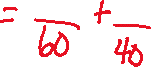 = __/60 + __/40